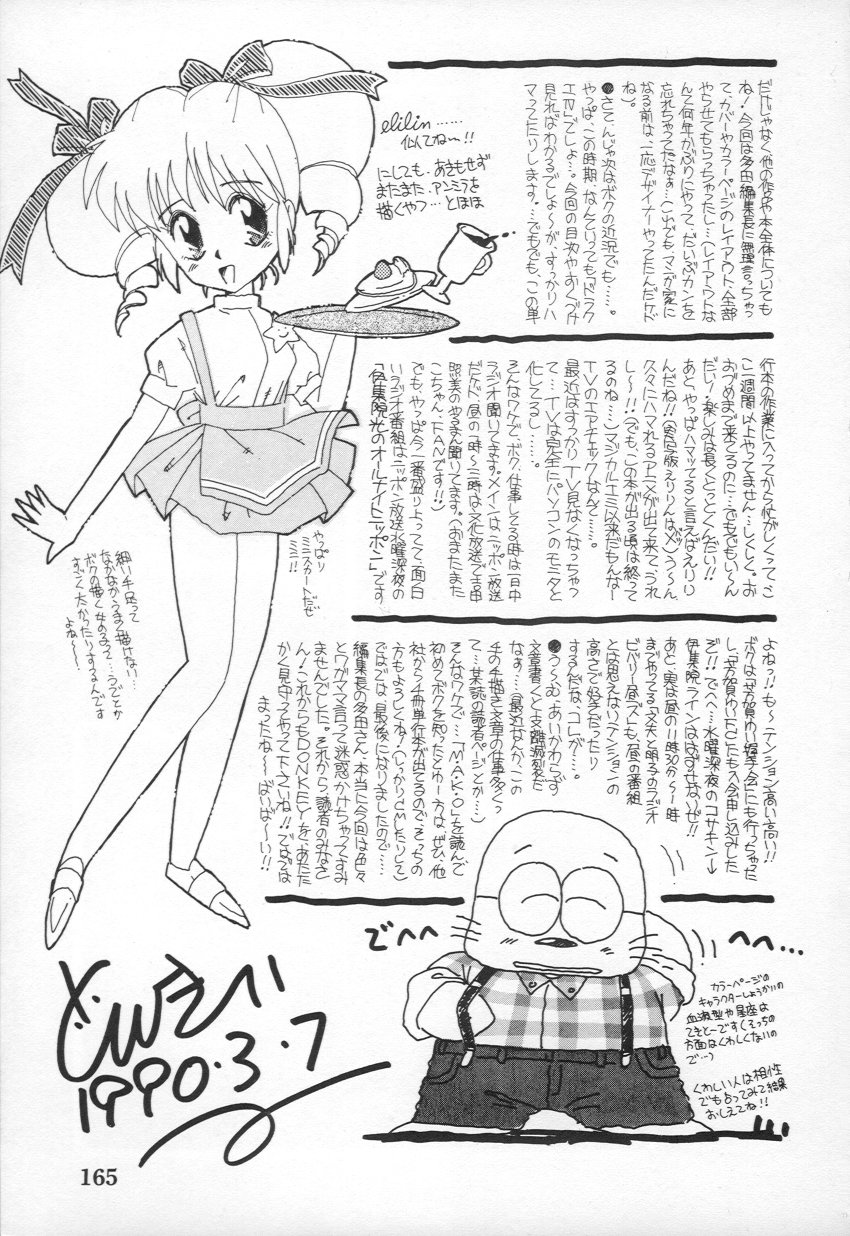 だけじゃなく他の作品や本全体についても
ね！今回は多田編集長に無理言っちゃっ
て、カバーやカラーページのレイアウト全部
やらせてもらっちゃったし…(レイアウトな
んて何年かぶりにやって、だいぶカンを
忘れちゃってたなぁ…(これでもマンガ家に
なる前は、一応デザイナーやってたんだけど
ね)。
●さてんじゃ次はボクの近況でも……。
やっぱ、この時期、なんといっても「ドラク
エⅣ」でしょ…。今回の目次やおくづけ
見ればわかるでしょーが、すっかりハ
マってたりします。…でもでも、この単
elilin……
似てねー!!
にしても、あきもせず
またまた、アンミラを
描くやつ…とほほ
行本の作業に入ってから忙がしくって、こ
こ二週間以上やってません…しくしく。お
おづめまで来てるのに…でもでもいーん
だい！楽しみは長くとっとくんだい!!
あと、やっぱハマッてると言えばえりり
んだね!!(実写版えりりんは××)う～ん、
久々にハマれるアニメが出て来て、うれ
し～!!(でも、この本が出る頃は終って
るのね…)マジカルエミ以来だもんなー
TVのエアチェックなんて……。
最近はすっかりTV見なくなっちゃっ
て…TVは完全にパソコンのモニタと
化してるし……。
そんなワケで、ボク、仕事してる時は一日中
ラジオ聞いてます。メインはニッポン放送
だケド、昼の1時～三時は文化放送で吉田
照美のやるまん聞いてます。(おまたまた
こちゃん、FANです!!)
でも、やっぱ今一番盛り上ってて、面白
いラジオ番組はニッポン放送水曜深夜の
「伊集院光のオールナイトニッポン」です
やっぱり
ミニスカートだぜ
ミミミ!!
細い手足って
なかなかうまく描けない…
ボクの描く女のコって…うでとか
すごく太かったりするんです
よねー～。
よねっ!!も～テンション高い高い!!
ボクは「芳賀ゆい握手会」にも行っちゃった
し、「芳賀ゆいFC」にも入会申し込みした
ぞ!!でへへ…水曜深夜のコサキン→
伊集院ラインははずせないぜ!!
あと、実は昼の11時30分～1時
までやってる「文夫と明子のラジオ
ビバリー昼ズ」も、昼の番組
とは思えないテンションの
高さで好きだったり
するんだな、コレが……。
●う～む、あいかわらず
文章書くと支離滅裂だ
なぁ…(最近なんか、この
手の手描き文章の仕事多くっ
て…某誌の読者ページとか…)
そんなワケで…「MA・KO」を読んで
初めてボクを知ったとゆー方は、ぜひ、他
社から4冊単行本が出てるのでそっちの
方もよろしくね！(しっかりCMしたりして)
ではでは、最後になりましたので……
編集長の多田さん、本当に今回は色々
とワガママ言って迷惑かけちゃってすみ
ませんでした。それから、読者のみなさ
ん！これからもDONKEYを、あたた
かく見守ってやって下さいね!!ではでは
まったね～～ばいば～い!!
でへへ
へへ…
カラーページの
キャラクターしょうかいの
血液型や星座は
てきとーです(そっちの
方面はくわしくないの
で…)
くわしい人は相性
でも占ってみて結果
おしえてね!!
1990・3・7
165